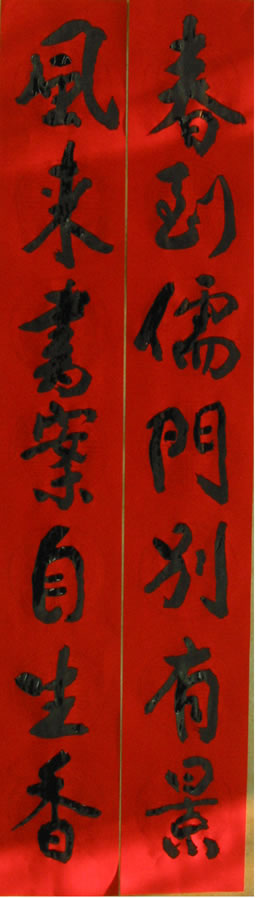 春到儒門別有景
風来書案自生香